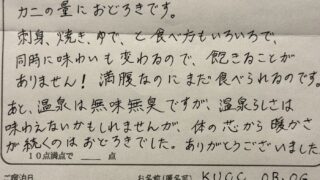 カニの量におどろきです。
刺身、焼き、ゆで、と食べ方もいろいろで、
同時に味わいも変わるので、飽きることが
ありません！満腹なのにまだ食べられるのです。
あと、温泉は無味無臭ですが、温泉らしさは
味わえないかもしれませんが、体の芯から暖かさ
が続くのはおどろきでした。ありがとうございました
10点満点で ____ 点
ご宿泊日
お名前(匿名可) KUGC OB.OG